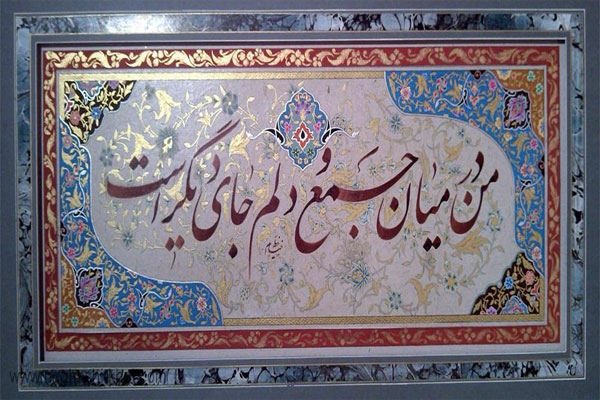 من در میان جمع و دلم جای دیگر است